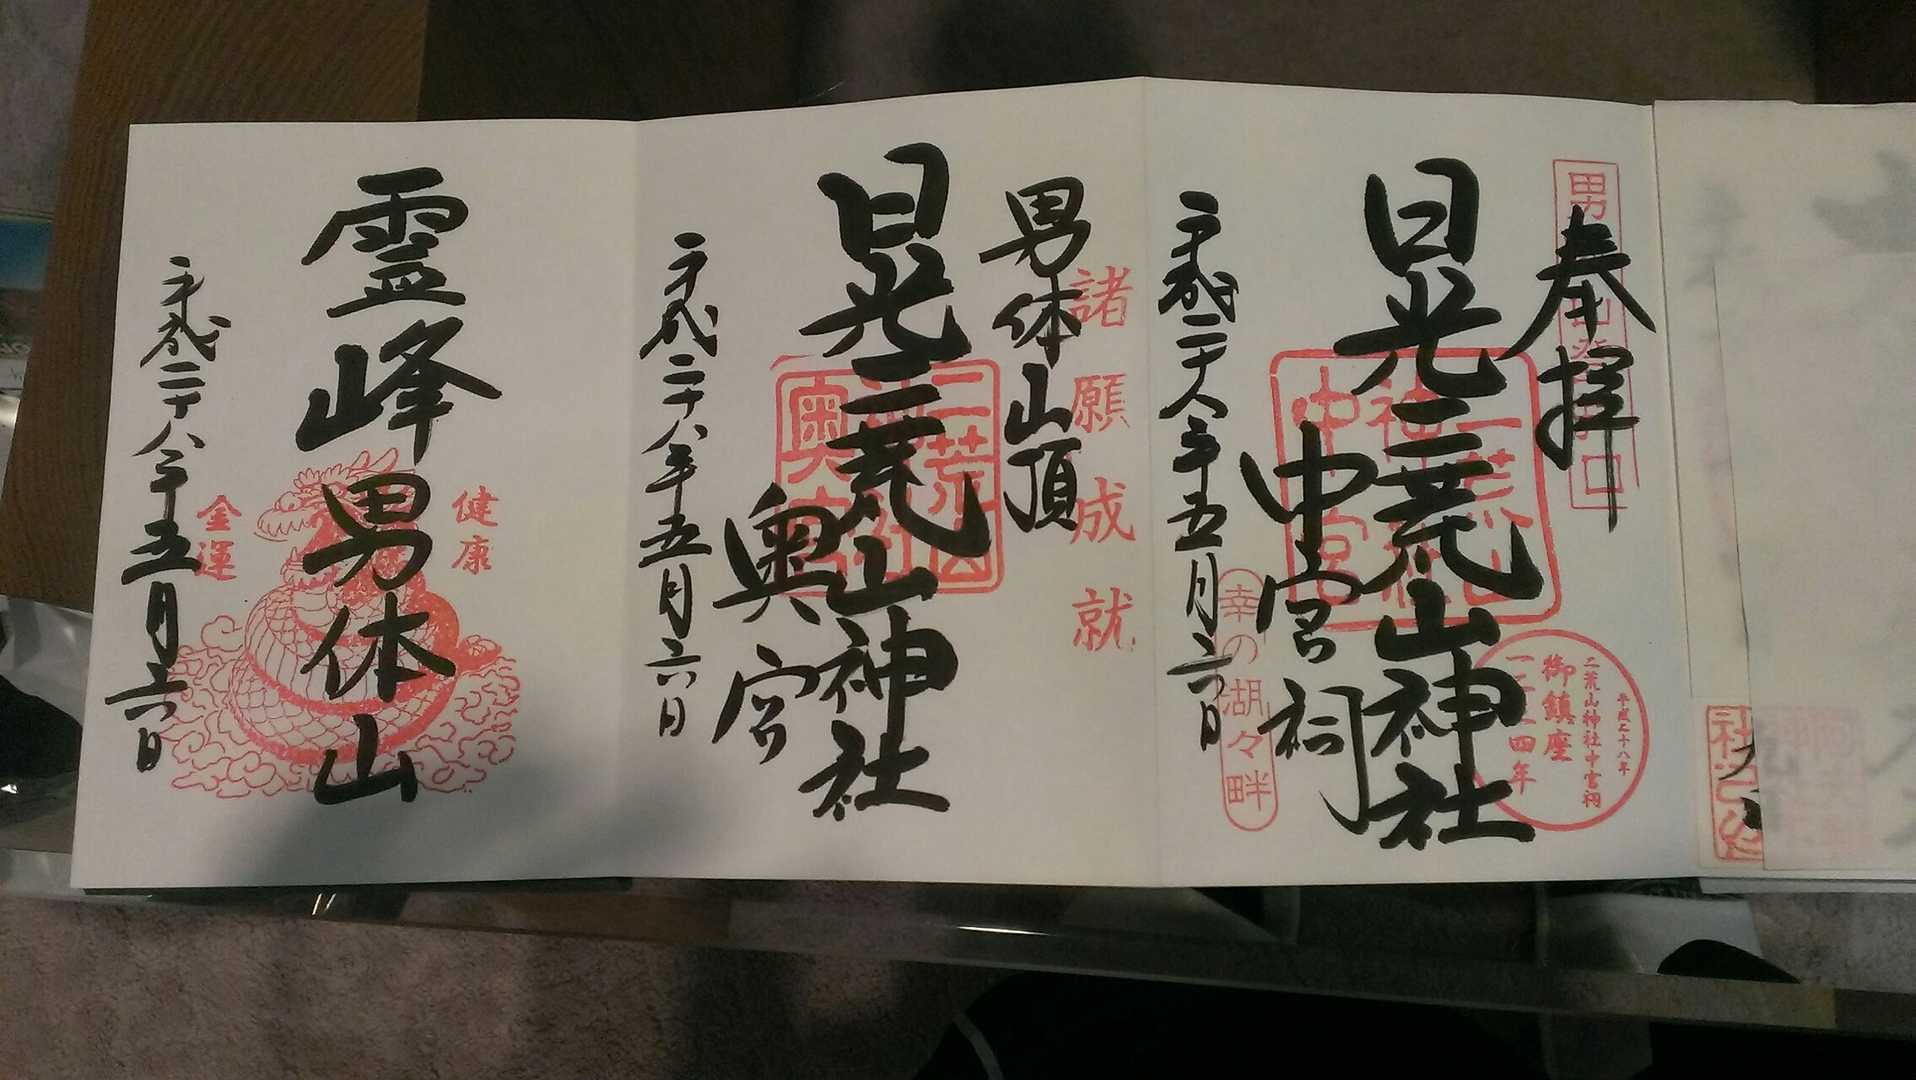 奉拝
日光二荒山神社
中宮祠
平成二十八年五月六日
二荒山神社
中宮祠
平成二十八年
二荒山神社中宮祠
御鎮座
一二三四年
幸の湖々畔
男体山頂
諸願成就
日光二荒山神社
奥宮
平成二十八年五月六日
霊峰男体山
健康
金運
平成二十八年五月六日